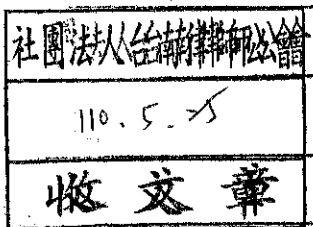 社團法人台南律師公會
110.5.25
收文章